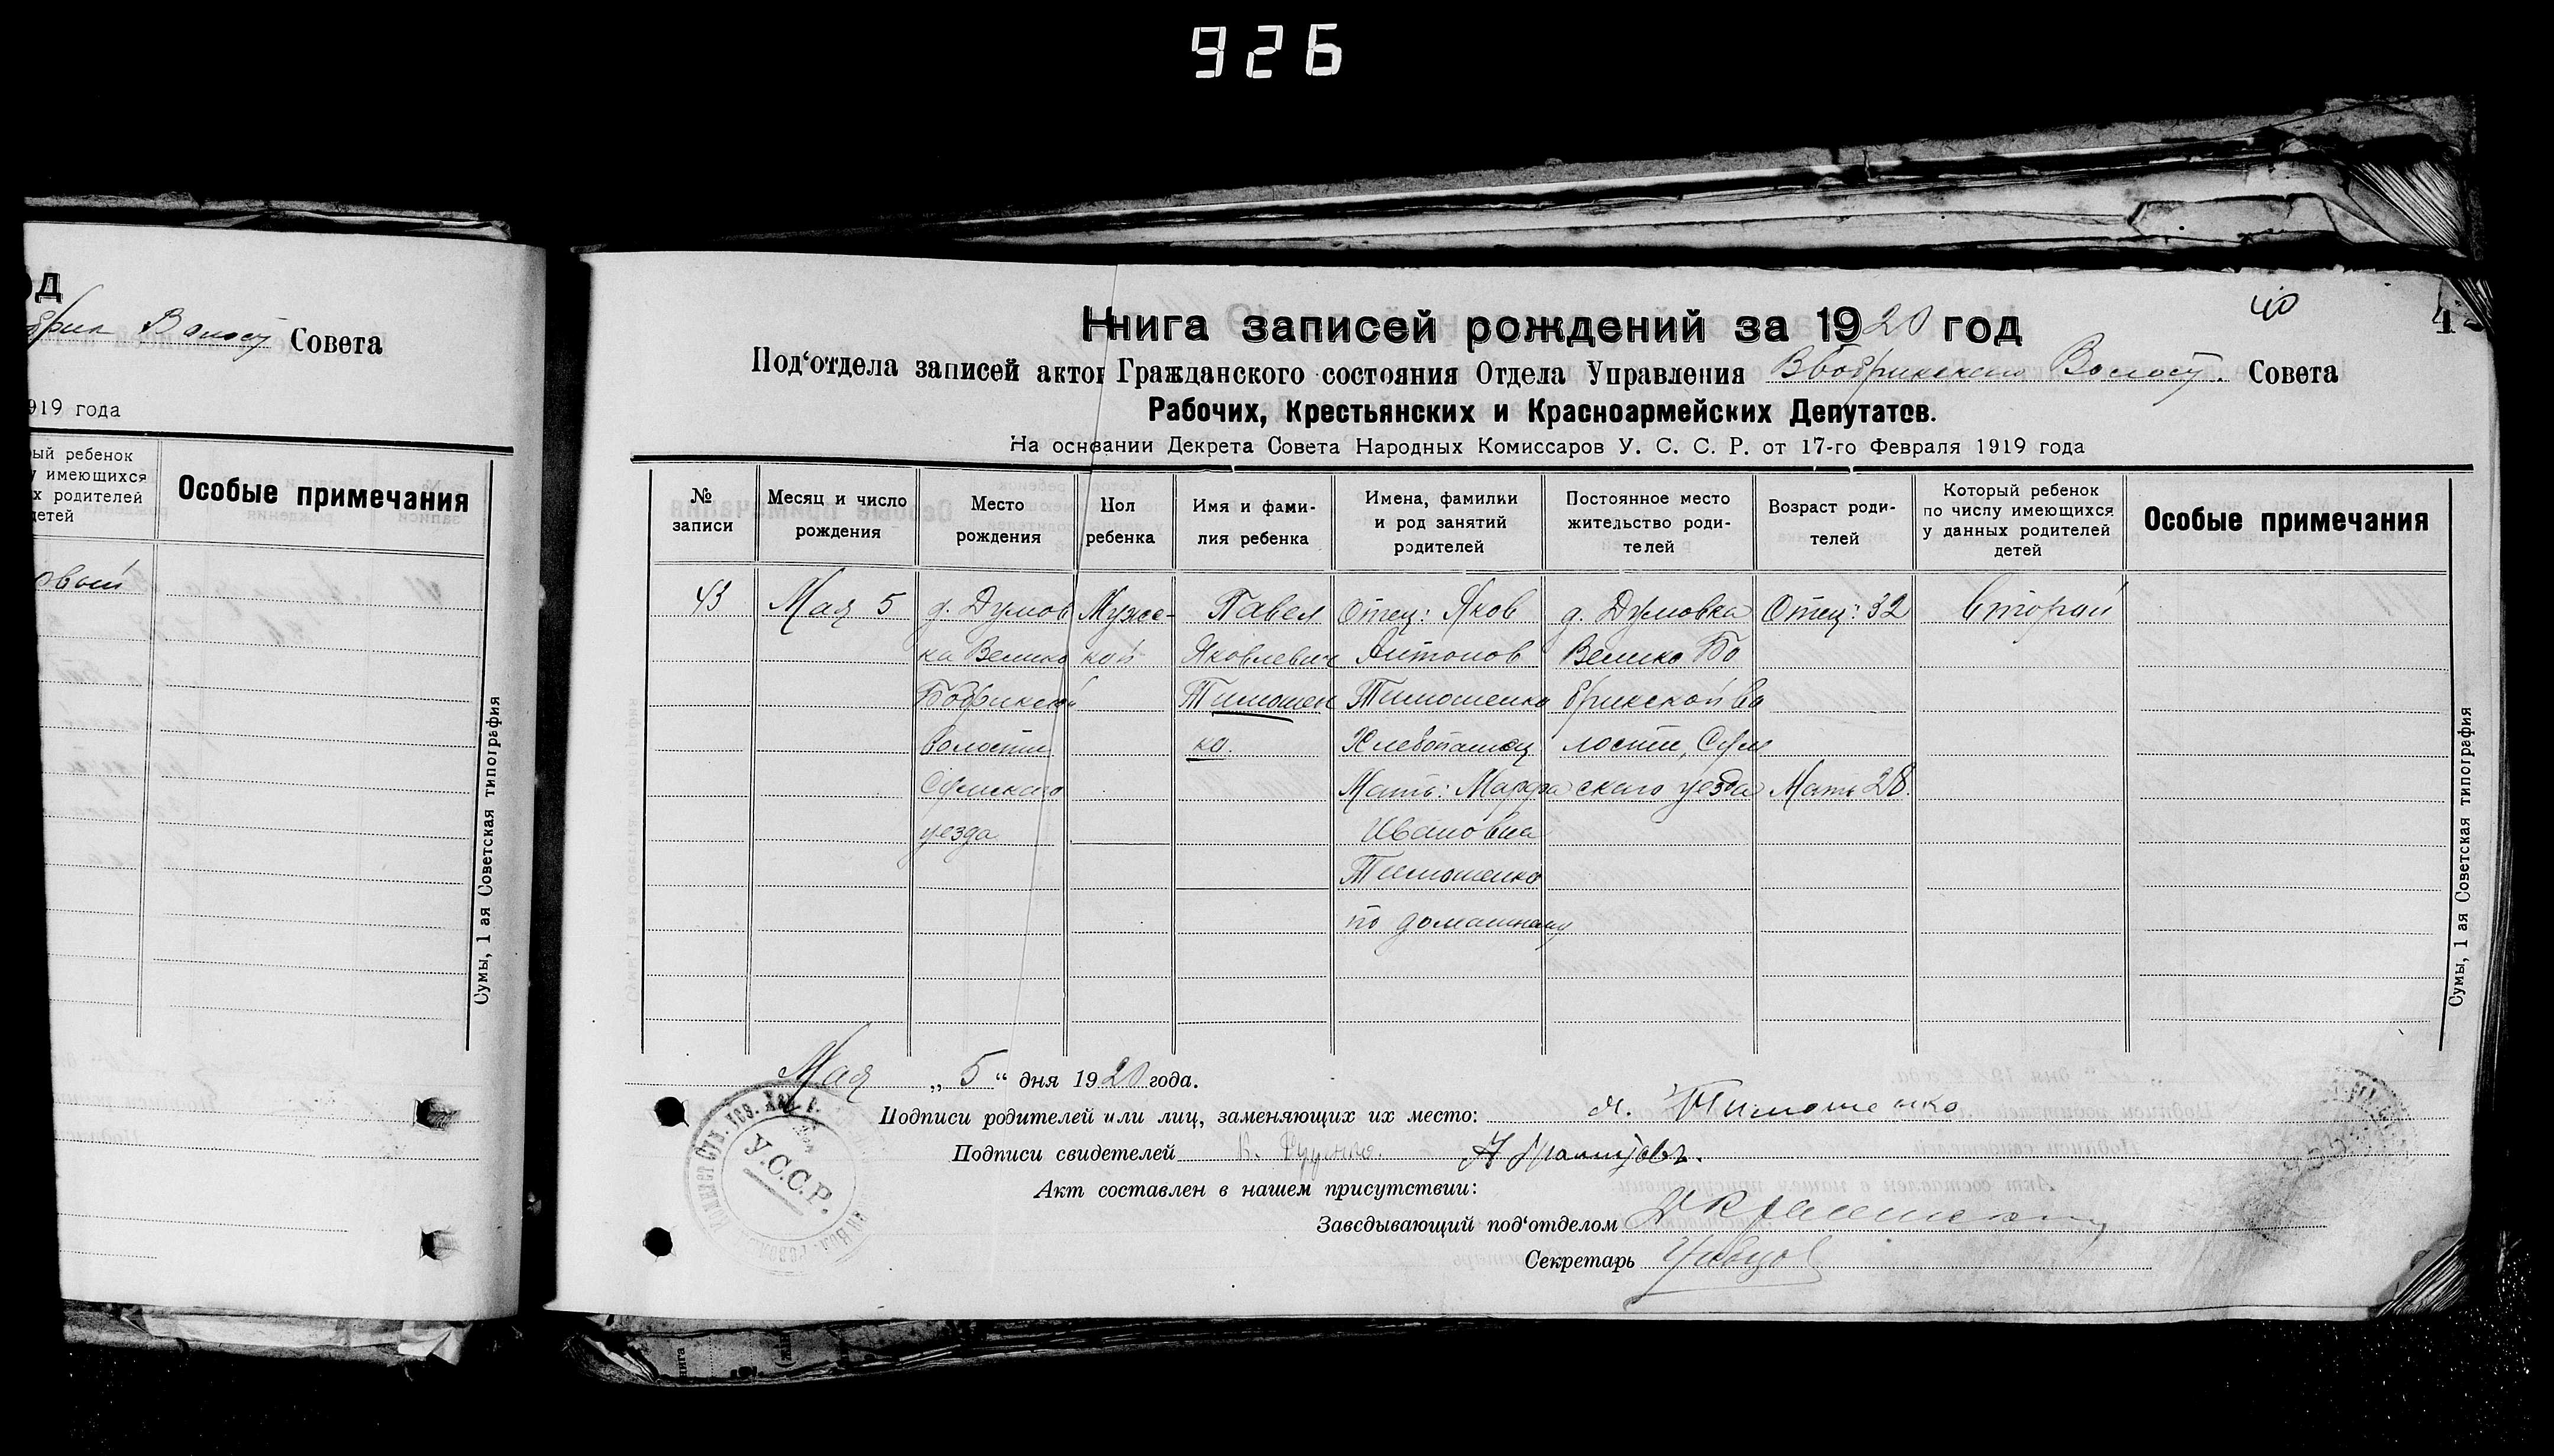 926
од
брик Волост Совета
919 года
ый ребенок
у имеющихся
х родителей
детей
Особые примечания
овый
Сумы, 1 ая Советская типография
40
4
Книга записей рождений за 1920 год
Под‘отдела записей актов Гражданского состояния Отдела Управления Вбобрикского Волост. Совета
Рабочих, Крестьянских и Красноармейских Депутатов.
На основании Декрета Совета Народных Комиссаров У. С. С. Р. от 17-го Февраля 1919 года
№ записи
Месяц и число рождения
Место рождения
Пол ребенка
Имя и фами-лия ребенка
Имена, фамилии и род занятий родителей
Постоянное место жительство роди-телей
Возраст роди-телей
Который ребенок по числу имеющихся у данных родителей детей
Особые примечания
43 Мая 5 д. Думов Мужс- Павел Отец: Яков д. Думовка Отец: 32 Второй
ка Велико кой Яковлевич Антонов Велико Бо
Бобрикской Тимошен Тимошенко брикской во
волости ко. Хлебопашец лости, Сум
Сумского Мать: Марфа ского уезда Мать 28.
уезда Ивановна
Тимошенко
по домашнему
Сумы, 1 ая Советская типография
Мая „5“ дня 1920 года.
Подписи родителей или лиц, заменяющих их место: Я. Тимошенко
Подписи свидетелей
Акт составлен в нашем присутствии:
Заведывающий под‘отделом
Секретарь
У.С.С.Р.